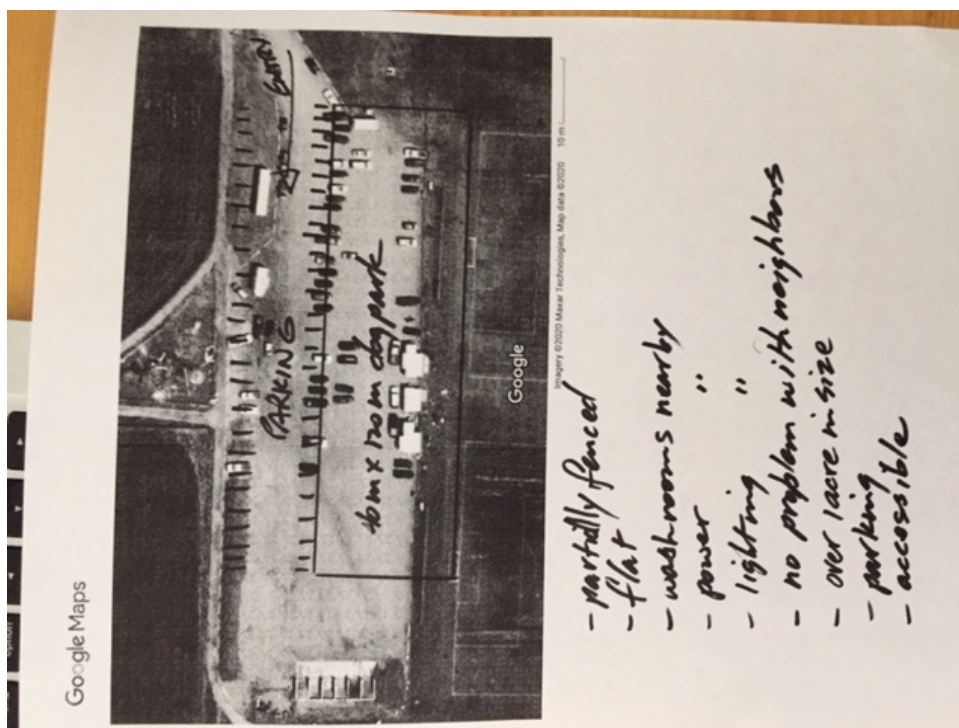 Google Maps
ENTRY
PARKING
120m dog park
Google
Imagery ©2020 Maxar Technologies, Map data ©2020 10 m
- partially fenced
- flat
- washrooms nearby
- power "
- lighting "
- no problem with neighbors
- over 1 acre in size
- parking
- accessible
option